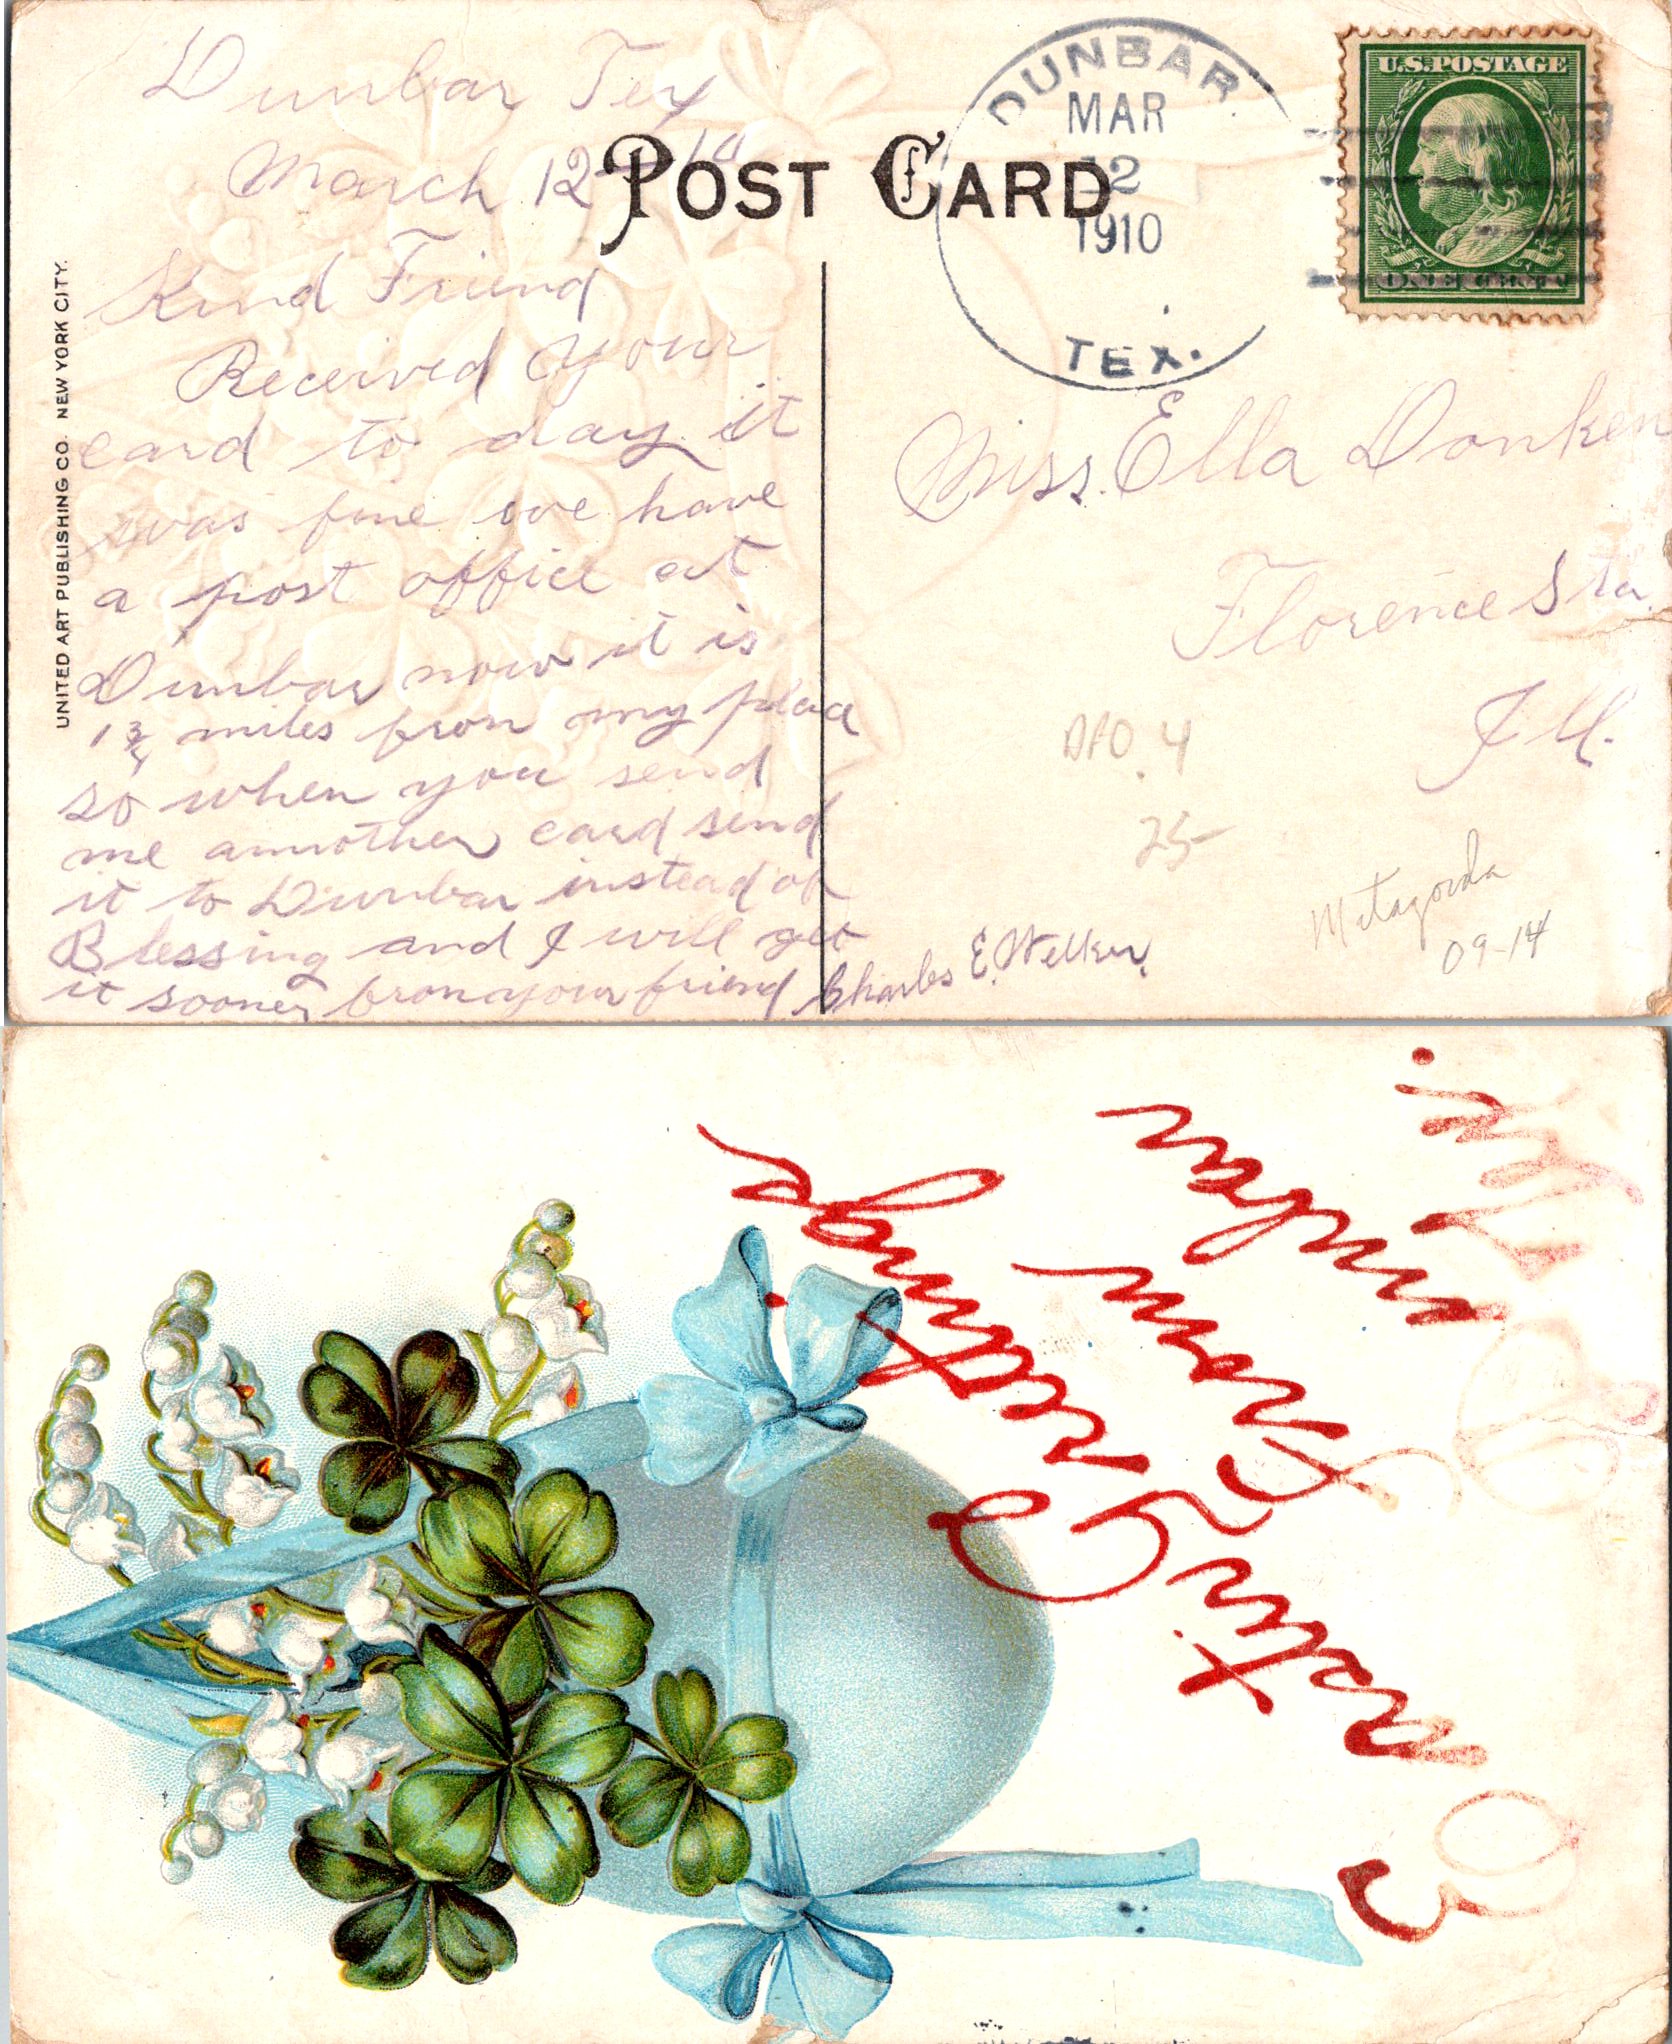 Dunbar Tex
March 12 - 10
POST CARD
Kind Friend
Received your
card to day it
was fine we have
a post office at
Dunbar now it is
1 3/4 miles from my place
so when you send
me annother card send
it to Dunbar instead of
Blessing and I will get
it sooner from your friend Charles E. Welker.
UNITED ART PUBLISHING CO. NEW YORK CITY.
DUNBAR
MAR
12
1910
TEX.
U.S. POSTAGE
ONE CENT
Miss. Ella Donken
Florence Sta.
Ill.
DPO 4
25-
Matagorda
09-14
Easter Greetings
From